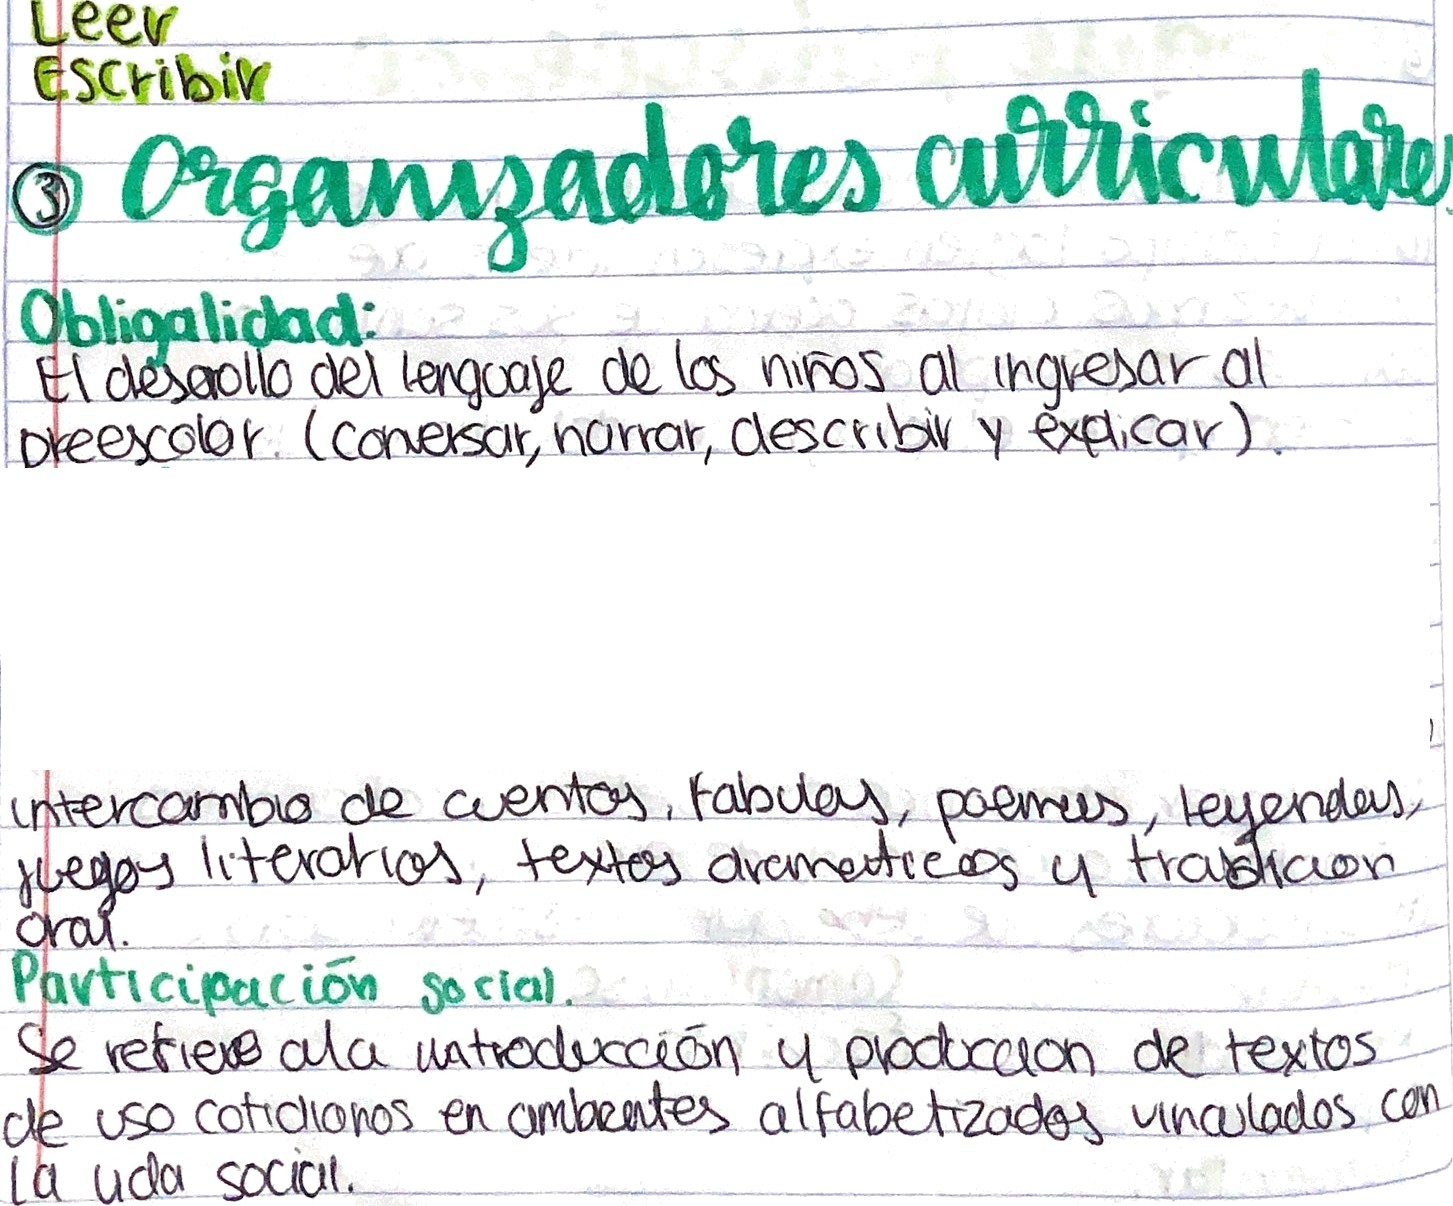 Leer
Escribir
③ Organizadores curriculares.
Obligalidad:
El desarollo del lenguaje de los niños al ingresar al
preescolar. (conversar, narrar, describir y explicar).
intercambio de cuentos, fabulas, poemas, leyendas,
juegos literarios, textos dramaticos y tradicion
oral.
Participación social.
Se refiere ala introducción y produccion de textos
de uso cotidianos en ambientes alfabetizados vinculados con
la vida social.